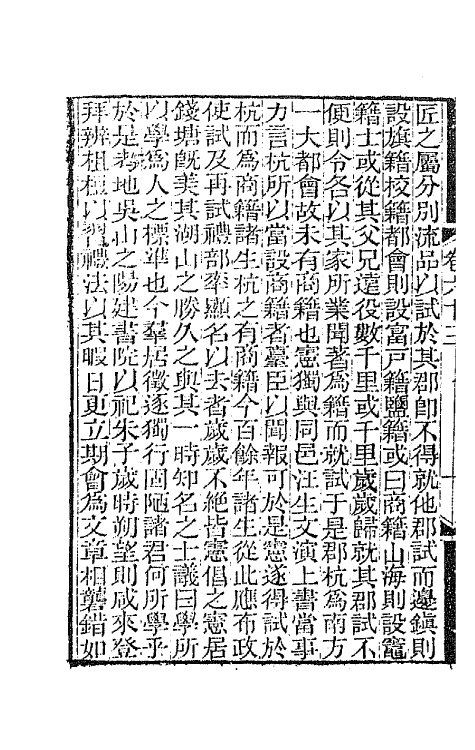 匠之屬分別流品以試於其郡卽不得就他郡試而邊鎭則
設旗籍校籍都會則設富戸籍鹽籍或曰商籍山海則設竈
籍士或從其父兄遠役數千里或千里歲歲歸就其郡試不
便則令各以其家所業聞著爲籍而就試于是郡杭爲南方
一大都會故未有商籍也憲獨與同邑汪生文演上書當事
力言杭所以當設商籍者臺臣以聞報可於是憲遂得試於
杭而爲商籍諸生杭之有商籍今百餘年諸生從此應布政
使試及再試禮部牽顯名以去者歲歲不絕皆憲倡之憲居
錢塘旣美其湖山之勝久之與其一時知名之士議曰學所
以學爲人之標準也今羣居徵逐獨行固陋諸君何所學乎
於是考地吳山之陽建書院以祀朱子歲時朔望則咸來登
拜辨俎植以習禮法以其暇日更立期會爲文章相礱錯如
卷六十三